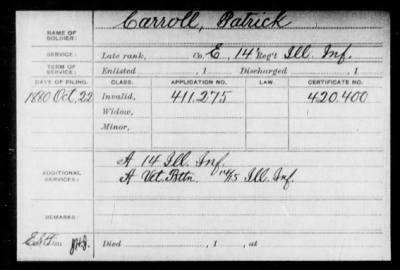 NAME OF SOLDIER: Carroll, Patrick
SERVICE: Late rank, Co. E, 14 Reg't Ill. Inf.
TERM OF SERVICE: Enlisted , 1 Discharged , 1
DATE OF FILING. CLASS. APPLICATION NO. LAW. CERTIFICATE NO.
1880 Oct, 22 Invalid, 411.275 420.400
Widow,
Minor,
ADDITIONAL SERVICES: A 14 Ill. Inf.
A Vet. Battn. 14/15 Ill. Inf.
REMARKS:
Died , 1 , at